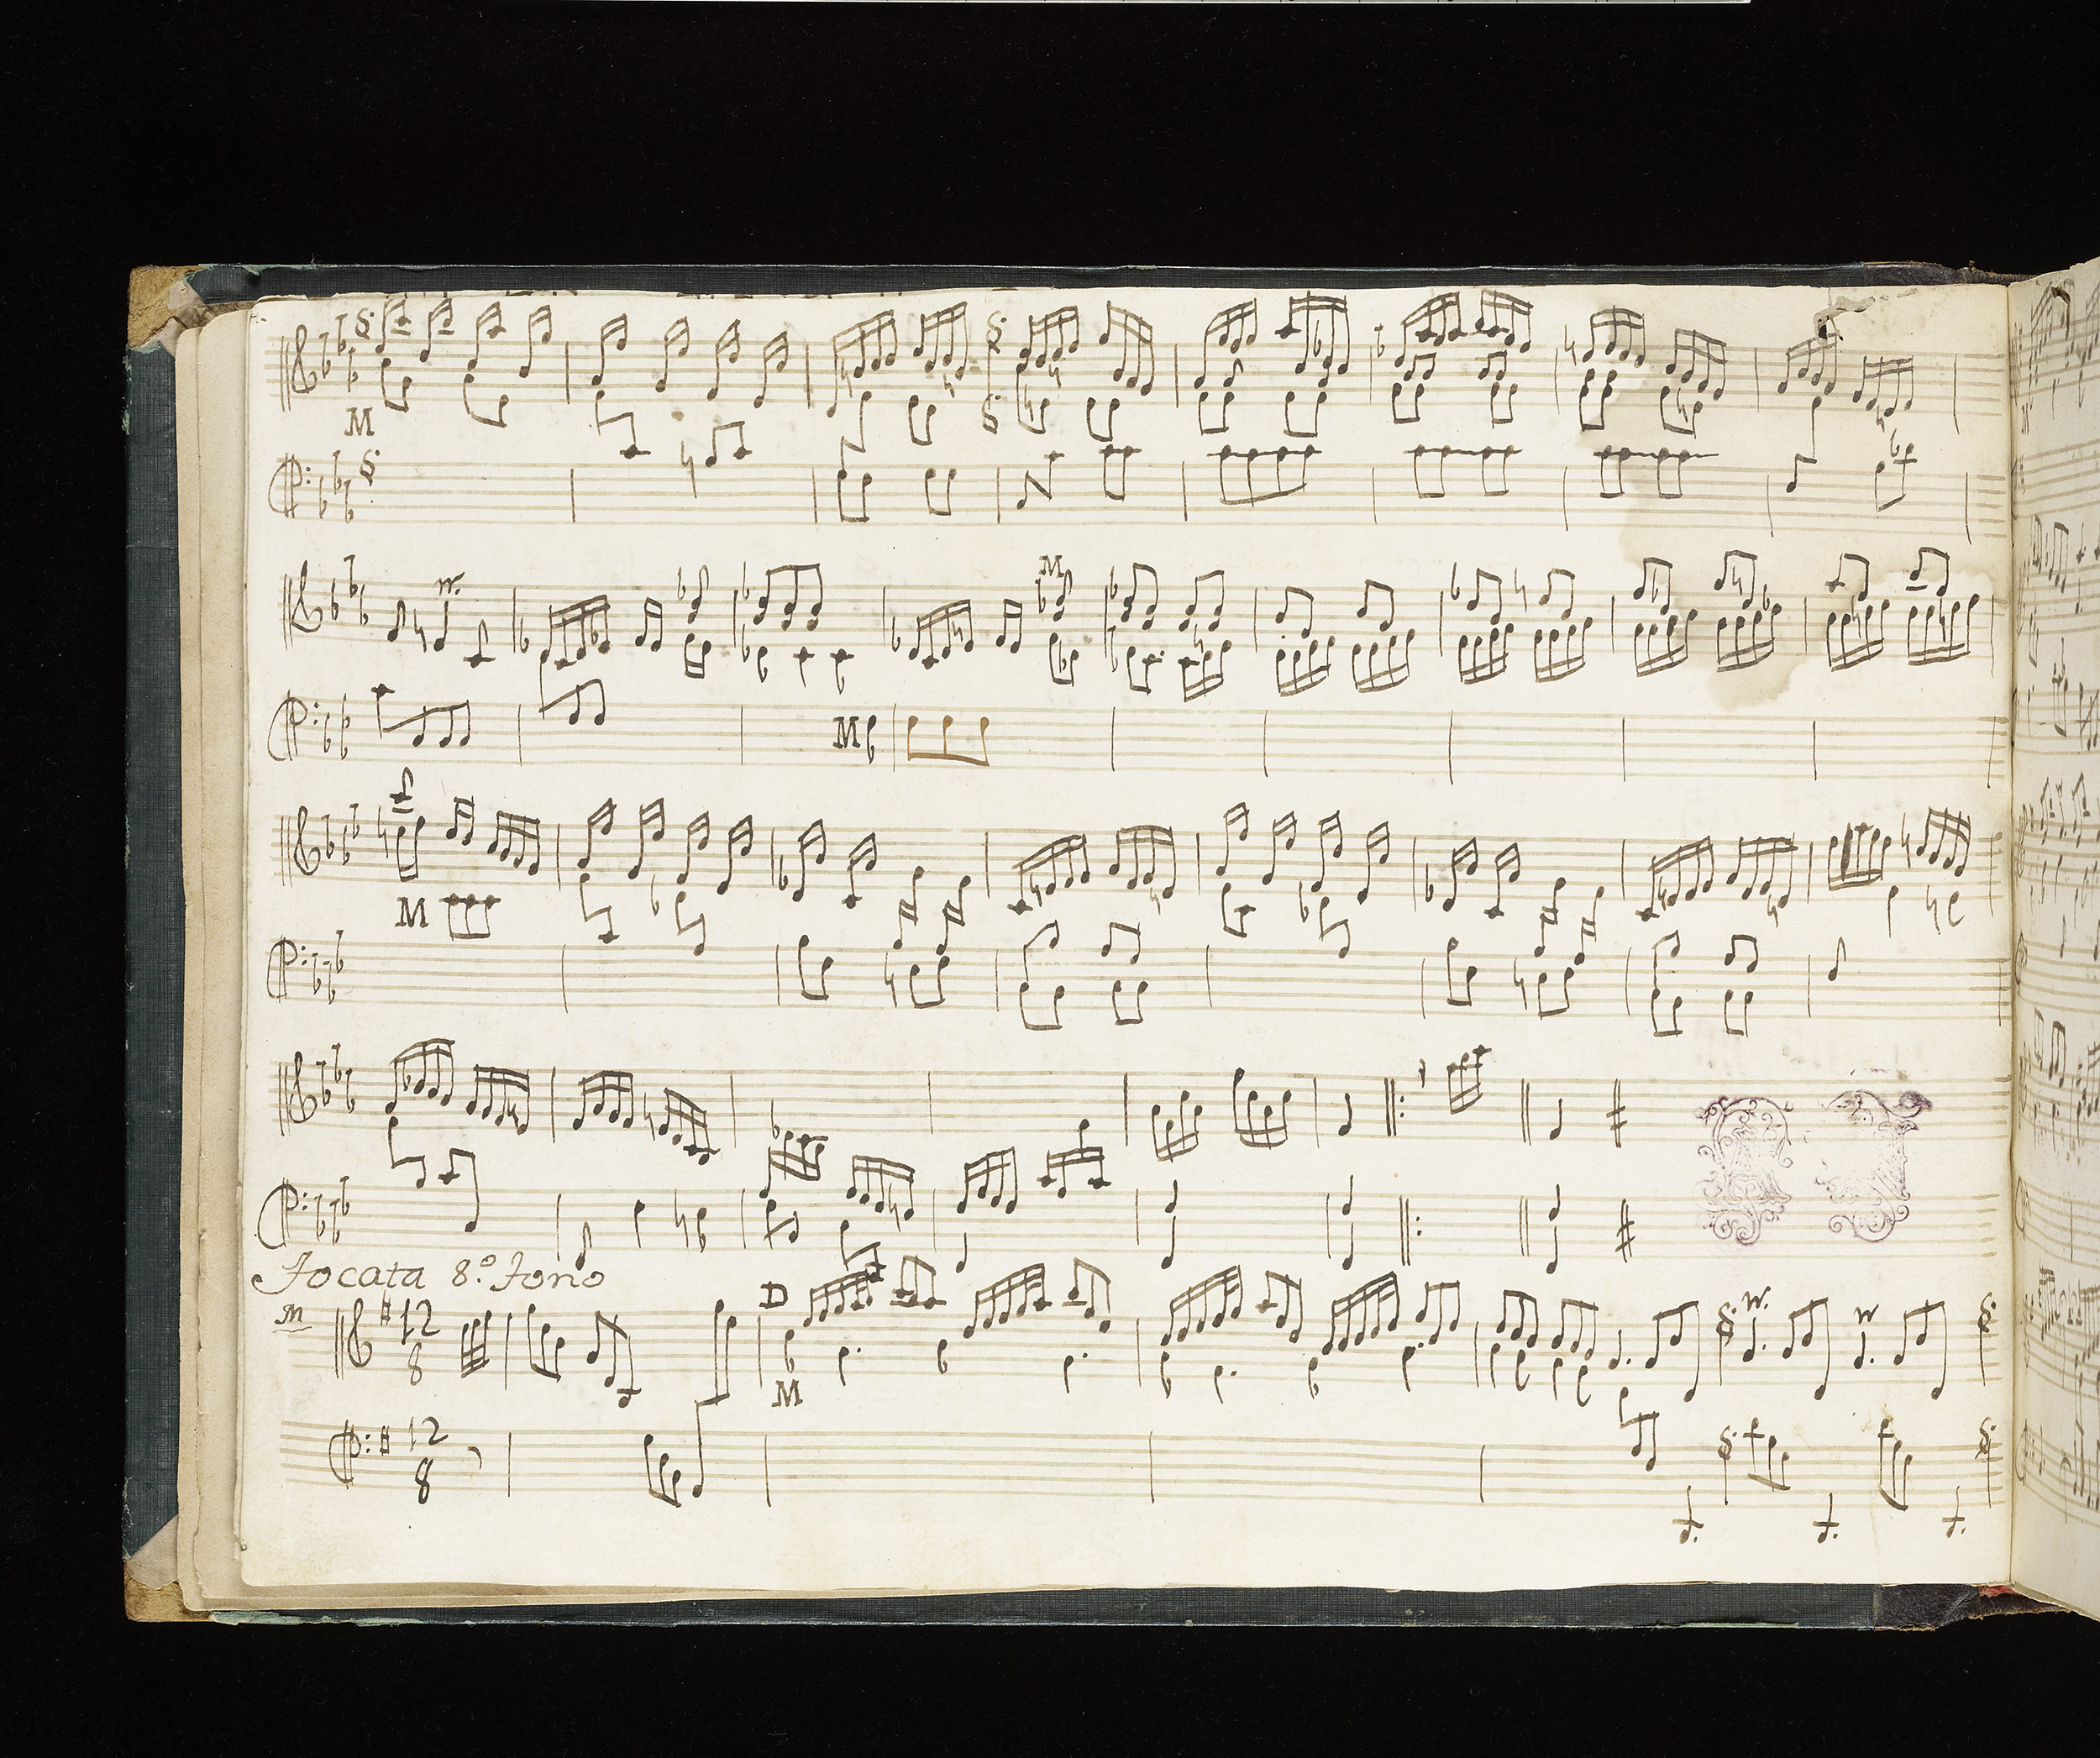 M
M
M
M
Tocata 8.º Tono
M
12
8
D
M
12
8